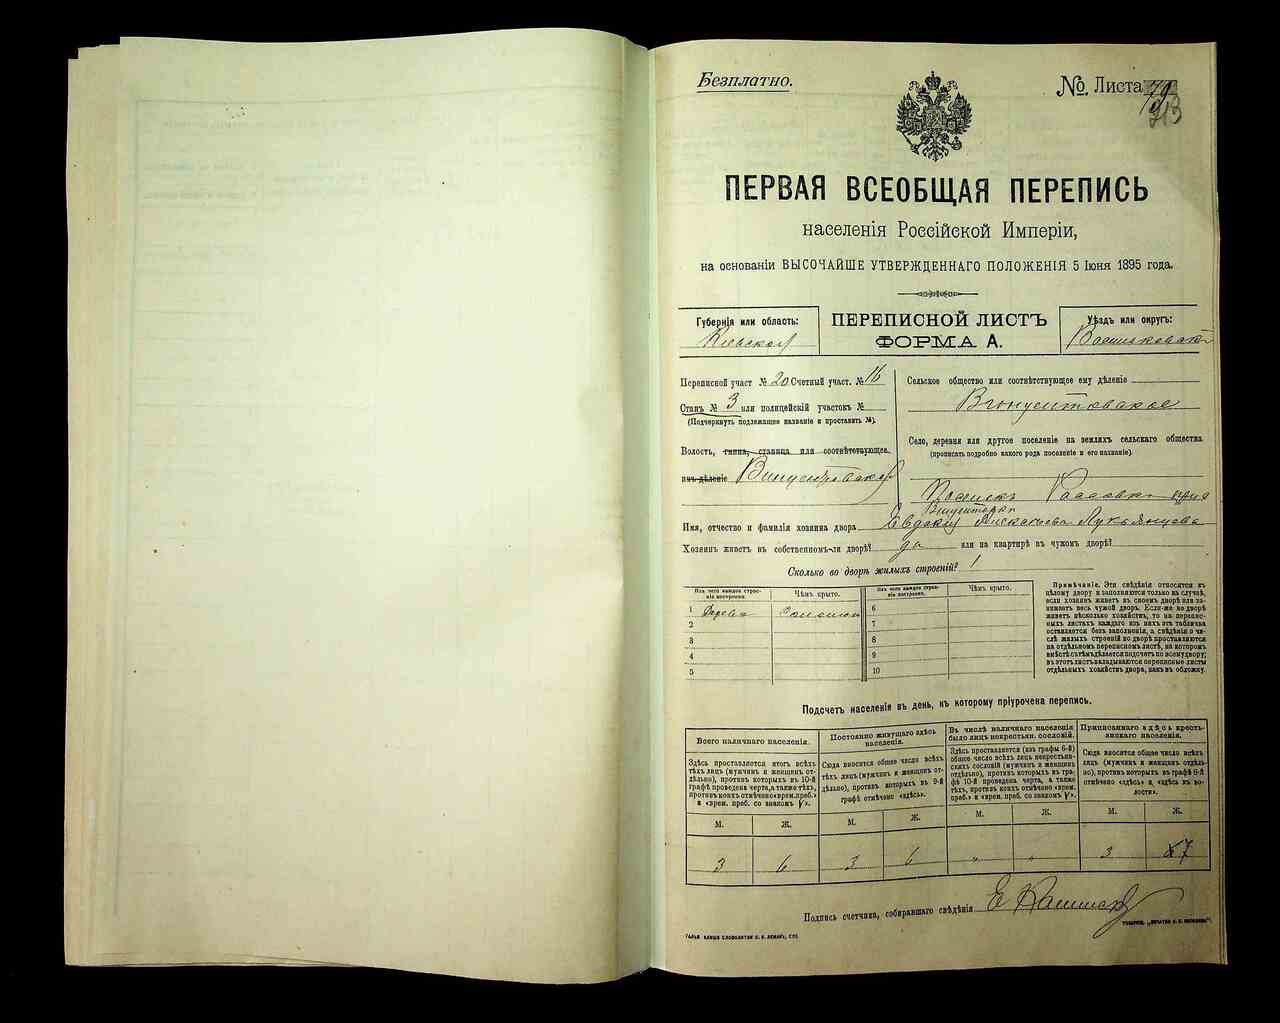 Безплатно.
№. Листа 79
213
ПЕРВАЯ ВСЕОБЩАЯ ПЕРЕПИСЬ
населенія Россійской Имперіи,
на основаніи ВЫСОЧАЙШЕ УТВЕРЖДЕННАГО ПОЛОЖЕНІЯ 5 Іюня 1895 года.
Губернія или область:
Кіевская
ПЕРЕПИСНОЙ ЛИСТЪ
ФОРМА А.
Уѣздъ или округъ:
Переписной участ № 20 Счетный участ. № 16
Станъ № 3 или полицейскій участокъ №
(Подчеркнуть подлежащее названіе и проставить №).
Волость, гмина, станица или соотвѣтствующее
имъ дѣленіе
Сельское общество или соотвѣтствующее ему дѣленіе
Село, деревня или другое поселеніе на земляхъ сельскаго общества
(прописать подробно какого рода поселеніе и его названіе).
Имя, отчество и фамилія хозяина двора Лукьянцева
Хозяинъ живетъ въ собственномъ-ли дворѣ? да или на квартирѣ въ чужомъ дворѣ?
Сколько во дворѣ жилыхъ строеній? 1
Изъ чего каждое строеніе построено.
Чѣмъ крыто.
Изъ чего каждое строеніе построено.
Чѣмъ крыто.
1 6
2 7
3 8
4 9
5 10
Примѣчаніе. Эти свѣдѣнія относятся къ
цѣлому двору и заполняются только въ случаѣ,
если хозяинъ живетъ въ своемъ дворѣ или за-
нимаетъ весь чужой дворъ. Если-же во дворѣ
живетъ нѣсколько хозяйствъ, то на перепис-
ныхъ листахъ каждаго изъ нихъ эта табличка
оставляется безъ заполненія, а свѣдѣнія о чи-
слѣ жилыхъ строеній во дворѣ проставляются
на отдѣльномъ переписномъ листѣ, на которомъ
вмѣстѣ съ тѣмъ дѣлается подсчетъ по всему двору;
въ этотъ листъ вкладываются переписные листы
отдѣльныхъ хозяйствъ двора, какъ въ обложку.
Подсчетъ населенія въ день, къ которому пріурочена перепись.
Всего наличнаго населенія.
Здѣсь проставляется итогъ всѣхъ
тѣхъ лицъ (мужчинъ и женщинъ от-
дѣльно), противъ которыхъ въ 10-й
графѣ проведена черта, а также тѣхъ,
противъ коихъ отмѣчено «врем. преб.»
и «врем. преб. со знакомъ V».
Постоянно живущаго здѣсь
населенія.
Сюда вносится общее число всѣхъ
тѣхъ лицъ (мужчинъ и женщинъ от-
дѣльно), противъ которыхъ въ 9-й
графѣ отмѣчено «здѣсь».
Въ числѣ наличнаго населенія
было лицъ некрестьян. сословій.
Здѣсь проставляется (изъ графы 6-й)
общее число всѣхъ лицъ некрестьян-
скихъ сословій (мужчинъ и женщинъ
отдѣльно), противъ которыхъ въ гра-
фѣ 10-й проведена черта, а также
тѣхъ, противъ коихъ отмѣчено «врем.
преб.» и «врем. преб. со знакомъ V».
Приписаннаго здѣсь кресть-
янскаго населенія.
Сюда вносится общее число всѣхъ
лицъ (мужчинъ и женщинъ отдѣль-
но), противъ которыхъ въ графѣ 8-й
отмѣчено «здѣсь» и «здѣсь въ во-
лости».
М. Ж. М. Ж. М. Ж. М. Ж.
3 6 3 6 „ „ 3 7
Подпись счетчика, собиравшаго свѣдѣнія